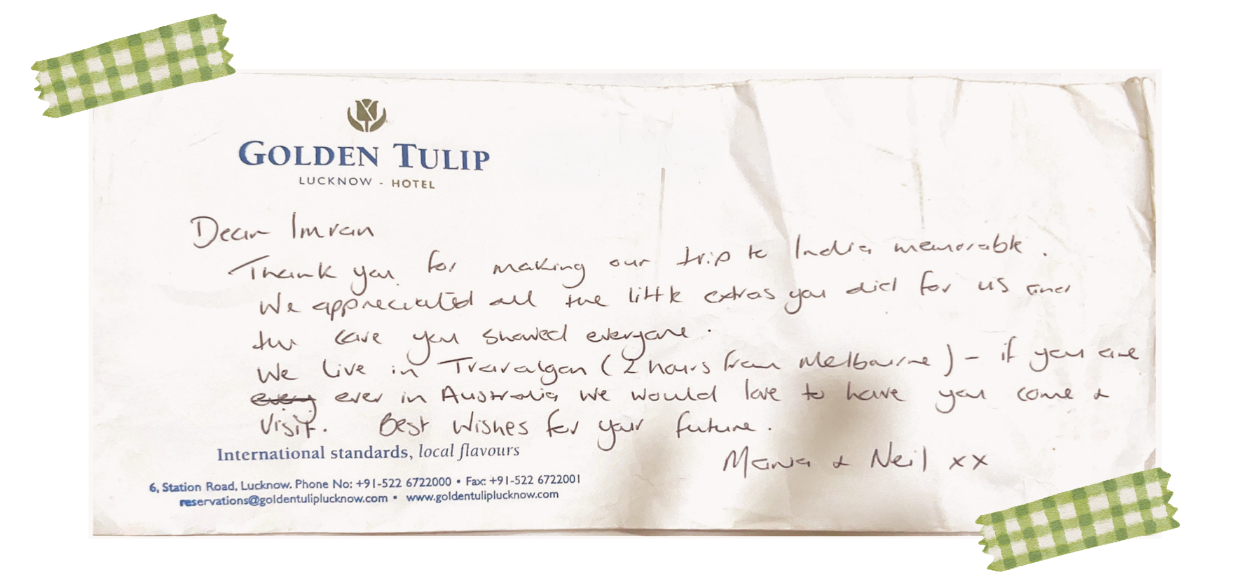 GOLDEN TULIP
LUCKNOW - HOTEL
Dear Imran
Thank you for making our trip to India memorable.
We appreciated all the little extras you did for us and
the care you showed everyone.
We live in Traralgon (2 hours from Melbourne) – if you are
every ever in Australia we would love to have you come &
visit. Best wishes for your future.
International standards, local flavours
& Neil xx
6, Station Road, Lucknow. Phone No: +91-522 6722000 • Fax: +91-522 6722001
reservations@goldentuliplucknow.com • www.goldentuliplucknow.com